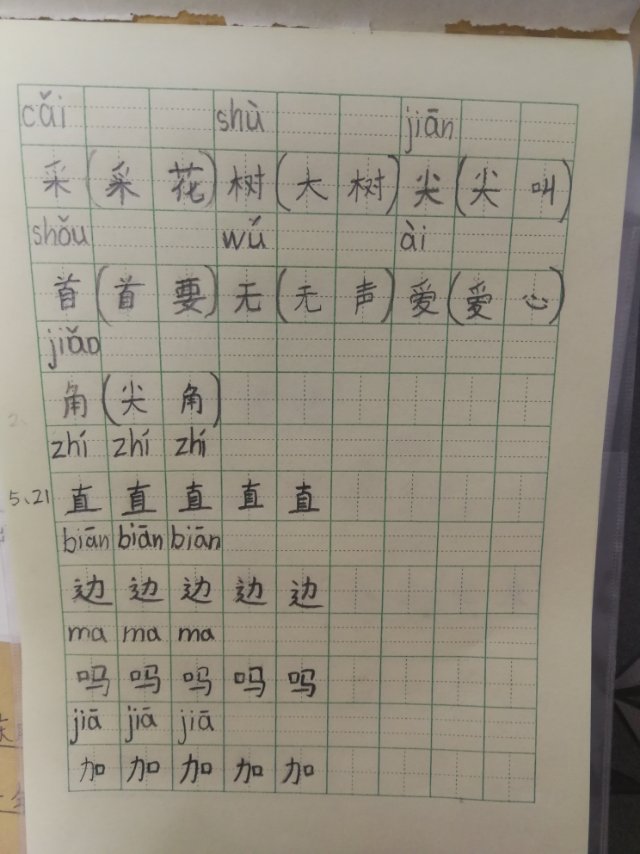 cǎi shù jiān
采(采花)树(大树)尖(尖叫)
shǒu wú ài
首(首要)无(无声)爱(爱心)
jiǎo
角(尖角)
zhí zhí zhí
5、21 直直直直直
biān biān biān
边边边边边
ma ma ma
吗吗吗吗吗
jiā jiā jiā
加加加加加